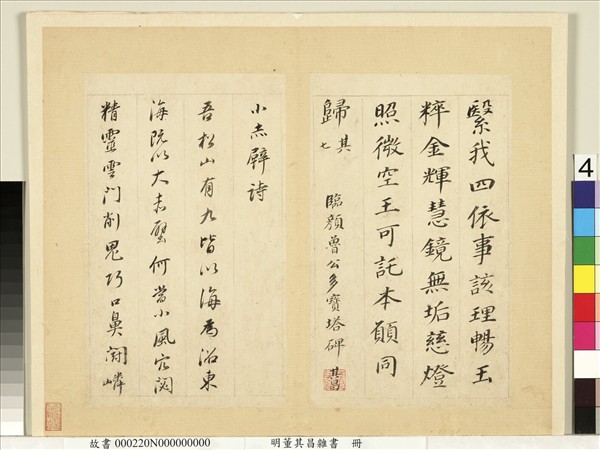 繄我四依事該理暢玉
粹金輝慧鏡無垢慈燈
照微空王可託本願同
歸 其
七
臨顏魯公多寶塔碑 其昌
其昌
小赤壁詩
吾松山有九皆以海為浴東
海既以大赤壁何當小風穴閟
精靈雲門削鬼巧口鼻開嶙
4
故書 000220N000000000
明董其昌雜書 冊